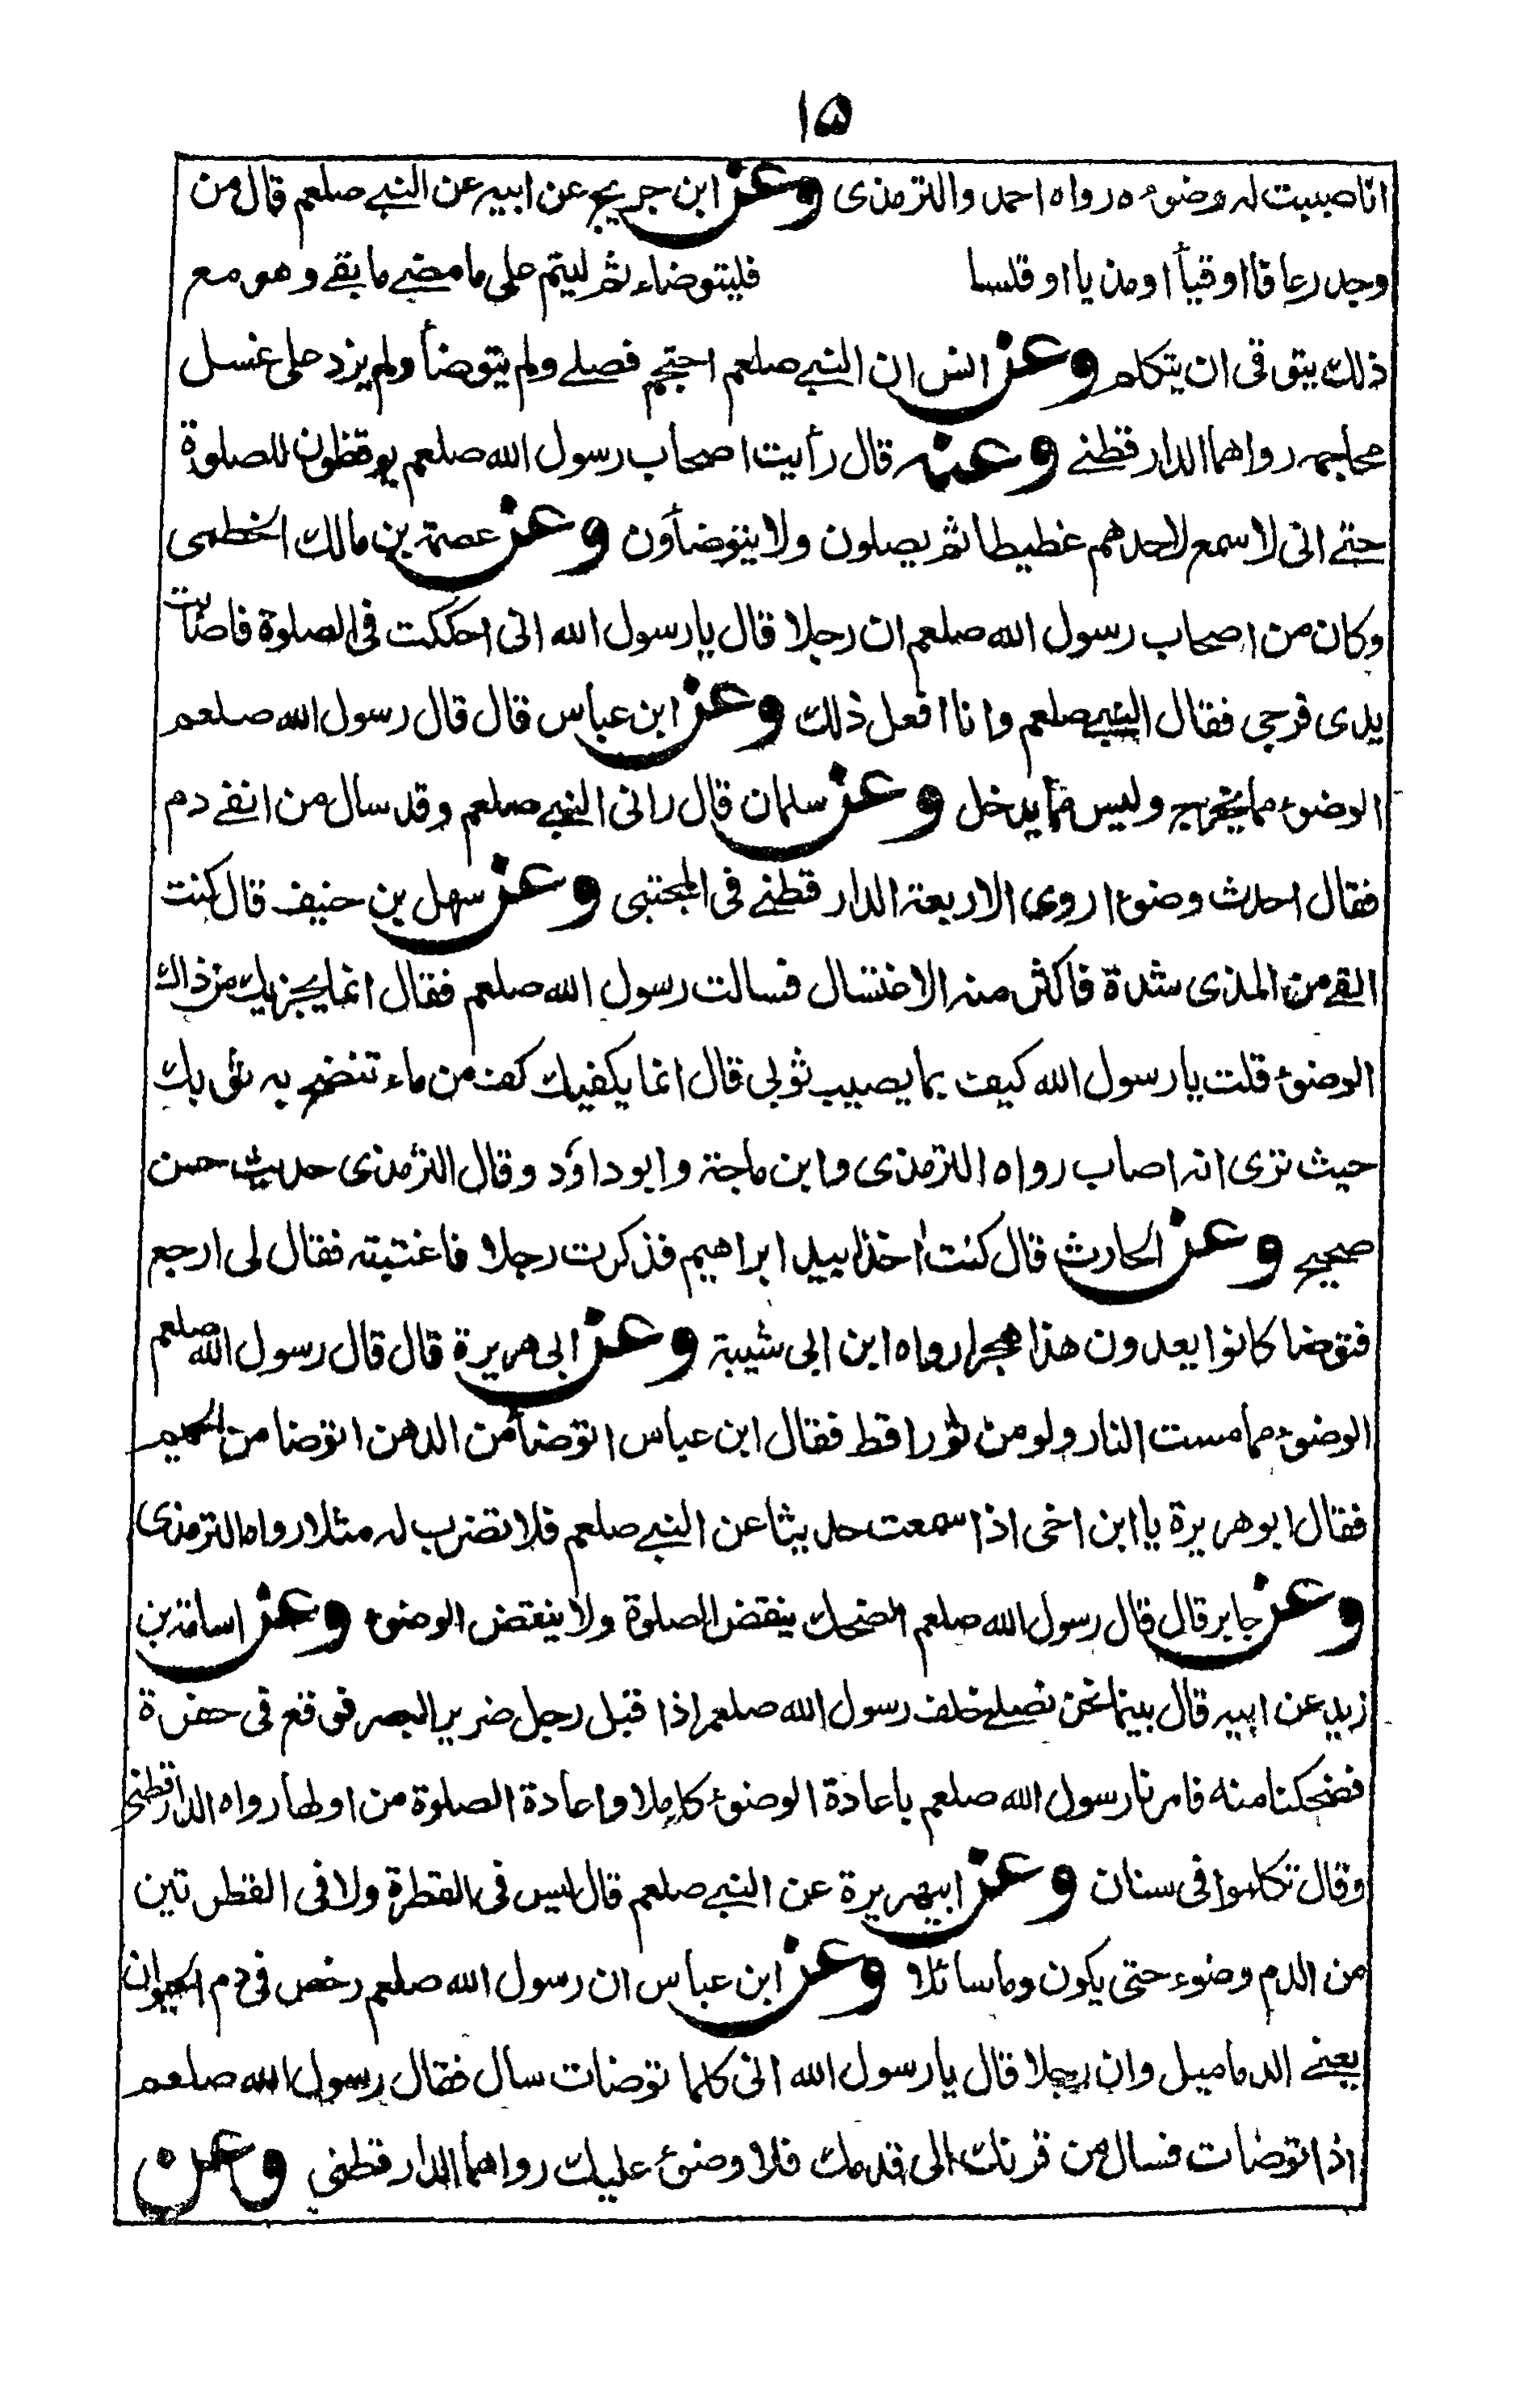 ۱۵
انا صببت له وضوءه رواه احمد والترمذى وعن ابن جريج عن ابيه عن النبي صلعم قال من
وجد رعافا او قيأ او مذيا او قلسا فليتوضاء ثم ليتم على ما مضے ما بقے وهو مع
ذلك يتوقى ان يتكلم وعن انس ان النبي صلعم احتجم فصلے ولم يتوضأ ولم يزد على غسل
محاجمه رواهما الدارقطنے وعنه قال رأيت اصحاب رسول الله صلعم يوقظون للصلوة
حتے انى لاسمع لاحدهم غطيطا ثم يصلون ولا يتوضأون وعن عصمة بن مالك الخطمى
وكان من اصحاب رسول الله صلعم ان رجلا قال يا رسول الله انى احتككت فى الصلوة فاصابت
يدى فرجى فقال النبي صلعم وانا افعل ذلك وعن ابن عباس قال قال رسول الله صلعم
الوضوء مما يخرج وليس مما يدخل وعن سلمان قال رانى النبي صلعم وقد سال من انفے دم
فقال احدث وضوءا روى الاربعة الدارقطنے فى المجتبى وعن سهل بن حنيف قال كنت
القے من المذى شدة فاكثر منه الاغتسال فسالت رسول الله صلعم فقال انما يجزيك من ذاك
الوضوء قلت يا رسول الله كيف بما يصيب ثوبى قال انما يكفيك كف من ماء تنضح به ثوبك
حيث ترى انه اصاب رواه الترمذى وابن ماجة وابو داؤد وقال الترمذى حديث حسن
صحيح وعن الحارث قال كنت اخذا بيد ابراهيم فذكرت رجلا فاغتبته فقال لى ارجع
فتوضا كانوا يعدون هذا هجرا رواه ابن ابى شيبة وعن ابى هريرة قال قال رسول الله صلعم
الوضوء مما مست النار ولو من ثور اقط فقال ابن عباس اتوضأ من الدهن اتوضا من الحميم
فقال ابو هريرة يا ابن اخى اذا سمعت حديثا عن النبي صلعم فلا تضرب له مثلا رواه الترمذى
وعن جابر قال قال رسول الله صلعم الضحك ينقض الصلوة ولا ينقض الوضوء وعن اسامة بن
زيد عن ابيه قال بينا نحن نصلے خلف رسول الله صلعم اذا قبل رجل ضرير البصر فوقع فى حفرة
فضحكنا منه فامرنا رسول الله صلعم باعادة الوضوء كاملا واعادة الصلوة من اولها رواه الدارقطنى
وقال تكلموا فى سنان وعن ابيهريرة عن النبي صلعم قال ليس فى القطرة ولا فى القطرتين
من الدم وضوء حتى يكون دما سائلا وعن ابن عباس ان رسول الله صلعم رخص فى دم الحبون
يعنے الدماميل وان رجلا قال يا رسول الله انى كلما توضات سال فقال رسول الله صلعم
اذا توضات فسال من قرنك الى قدمك فلا وضوء عليك رواهما الدارقطنى وعن